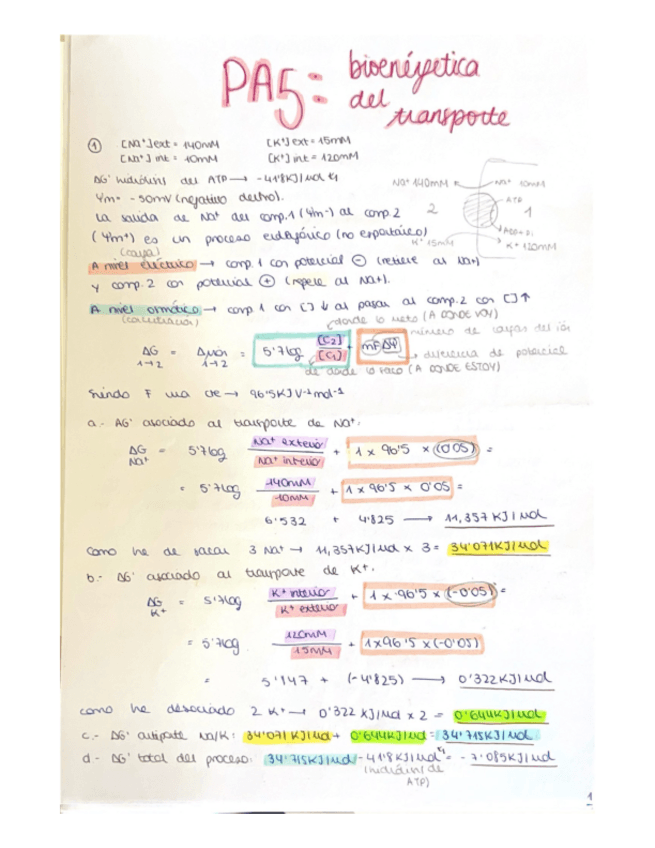 PA5: bioenérgetica
del transporte
① [Na⁺]ext = 140mM [K⁺]ext = 15mM
[Na⁺] int = 10mM [K⁺] int = 120mM
ΔG' hidrólisis del ATP → -41'8KJ/mol
Ψm = -50mV (negativo dentro).
La salida de Na⁺ del comp.1 (Ψm-) al comp.2
(Ψm⁺) es un proceso endergónico (no espontáneo)
Na⁺ 140mM Na⁺ 10mM
2 ATP 1
ADP+Pi
K⁺ 15mM K⁺ 120mM
(carga)
A nivel eléctrico → comp. 1 con potencial ⊖ (retiene al Na+)
y comp. 2 con potencial ⊕ (repele al Na+).
A nivel osmótico → comp 1 con [] ↓ al pasar al comp.2 con [] ↑
(concentración) donde lo meto (A DONDE VOY)
número de cargas del ión
ΔG 1→2 = Δμion 1→2 = 5'7log [C2]/[C1] + mFΔΨ
diferencia de potencial
de donde lo saco (A DONDE ESTOY)
Siendo F una cte → 96'5KJ V⁻¹mol⁻¹
a.- ΔG' asociado al transporte de Na⁺:
ΔG Na⁺ = 5'7log Na⁺ exterior/Na⁺ interior + 1 x 96'5 x (0'05) =
= 5'7log 140mM/10mM + 1 x 96'5 x 0'05 =
6'532 + 4'825 → 11,357 KJ/mol
como he de sacar 3 Na⁺ → 11,357KJ/mol x 3 = 34'071KJ/mol
b.- ΔG' asociado al transporte de K⁺.
ΔG K⁺ = 5'7log K⁺ interior/K⁺ exterior + 1 x 96'5 x (-0'05) =
= 5'7log 120mM/15mM + 1x96'5 x(-0'05)
= 5'147 + (-4'825) → 0'322KJ/mol
como he 2 K⁺ → 0'322 KJ/mol x 2 = 0'644KJ/mol
c.- ΔG' antiporte Na/K: 34'071KJ/mol + 0'644KJ/mol = 34'715KJ/mol
d.- ΔG' total del proceso: 34'715KJ/mol -41'8KJ/mol = -7'085KJ/mol
(hidrólisis de
ATP)
1